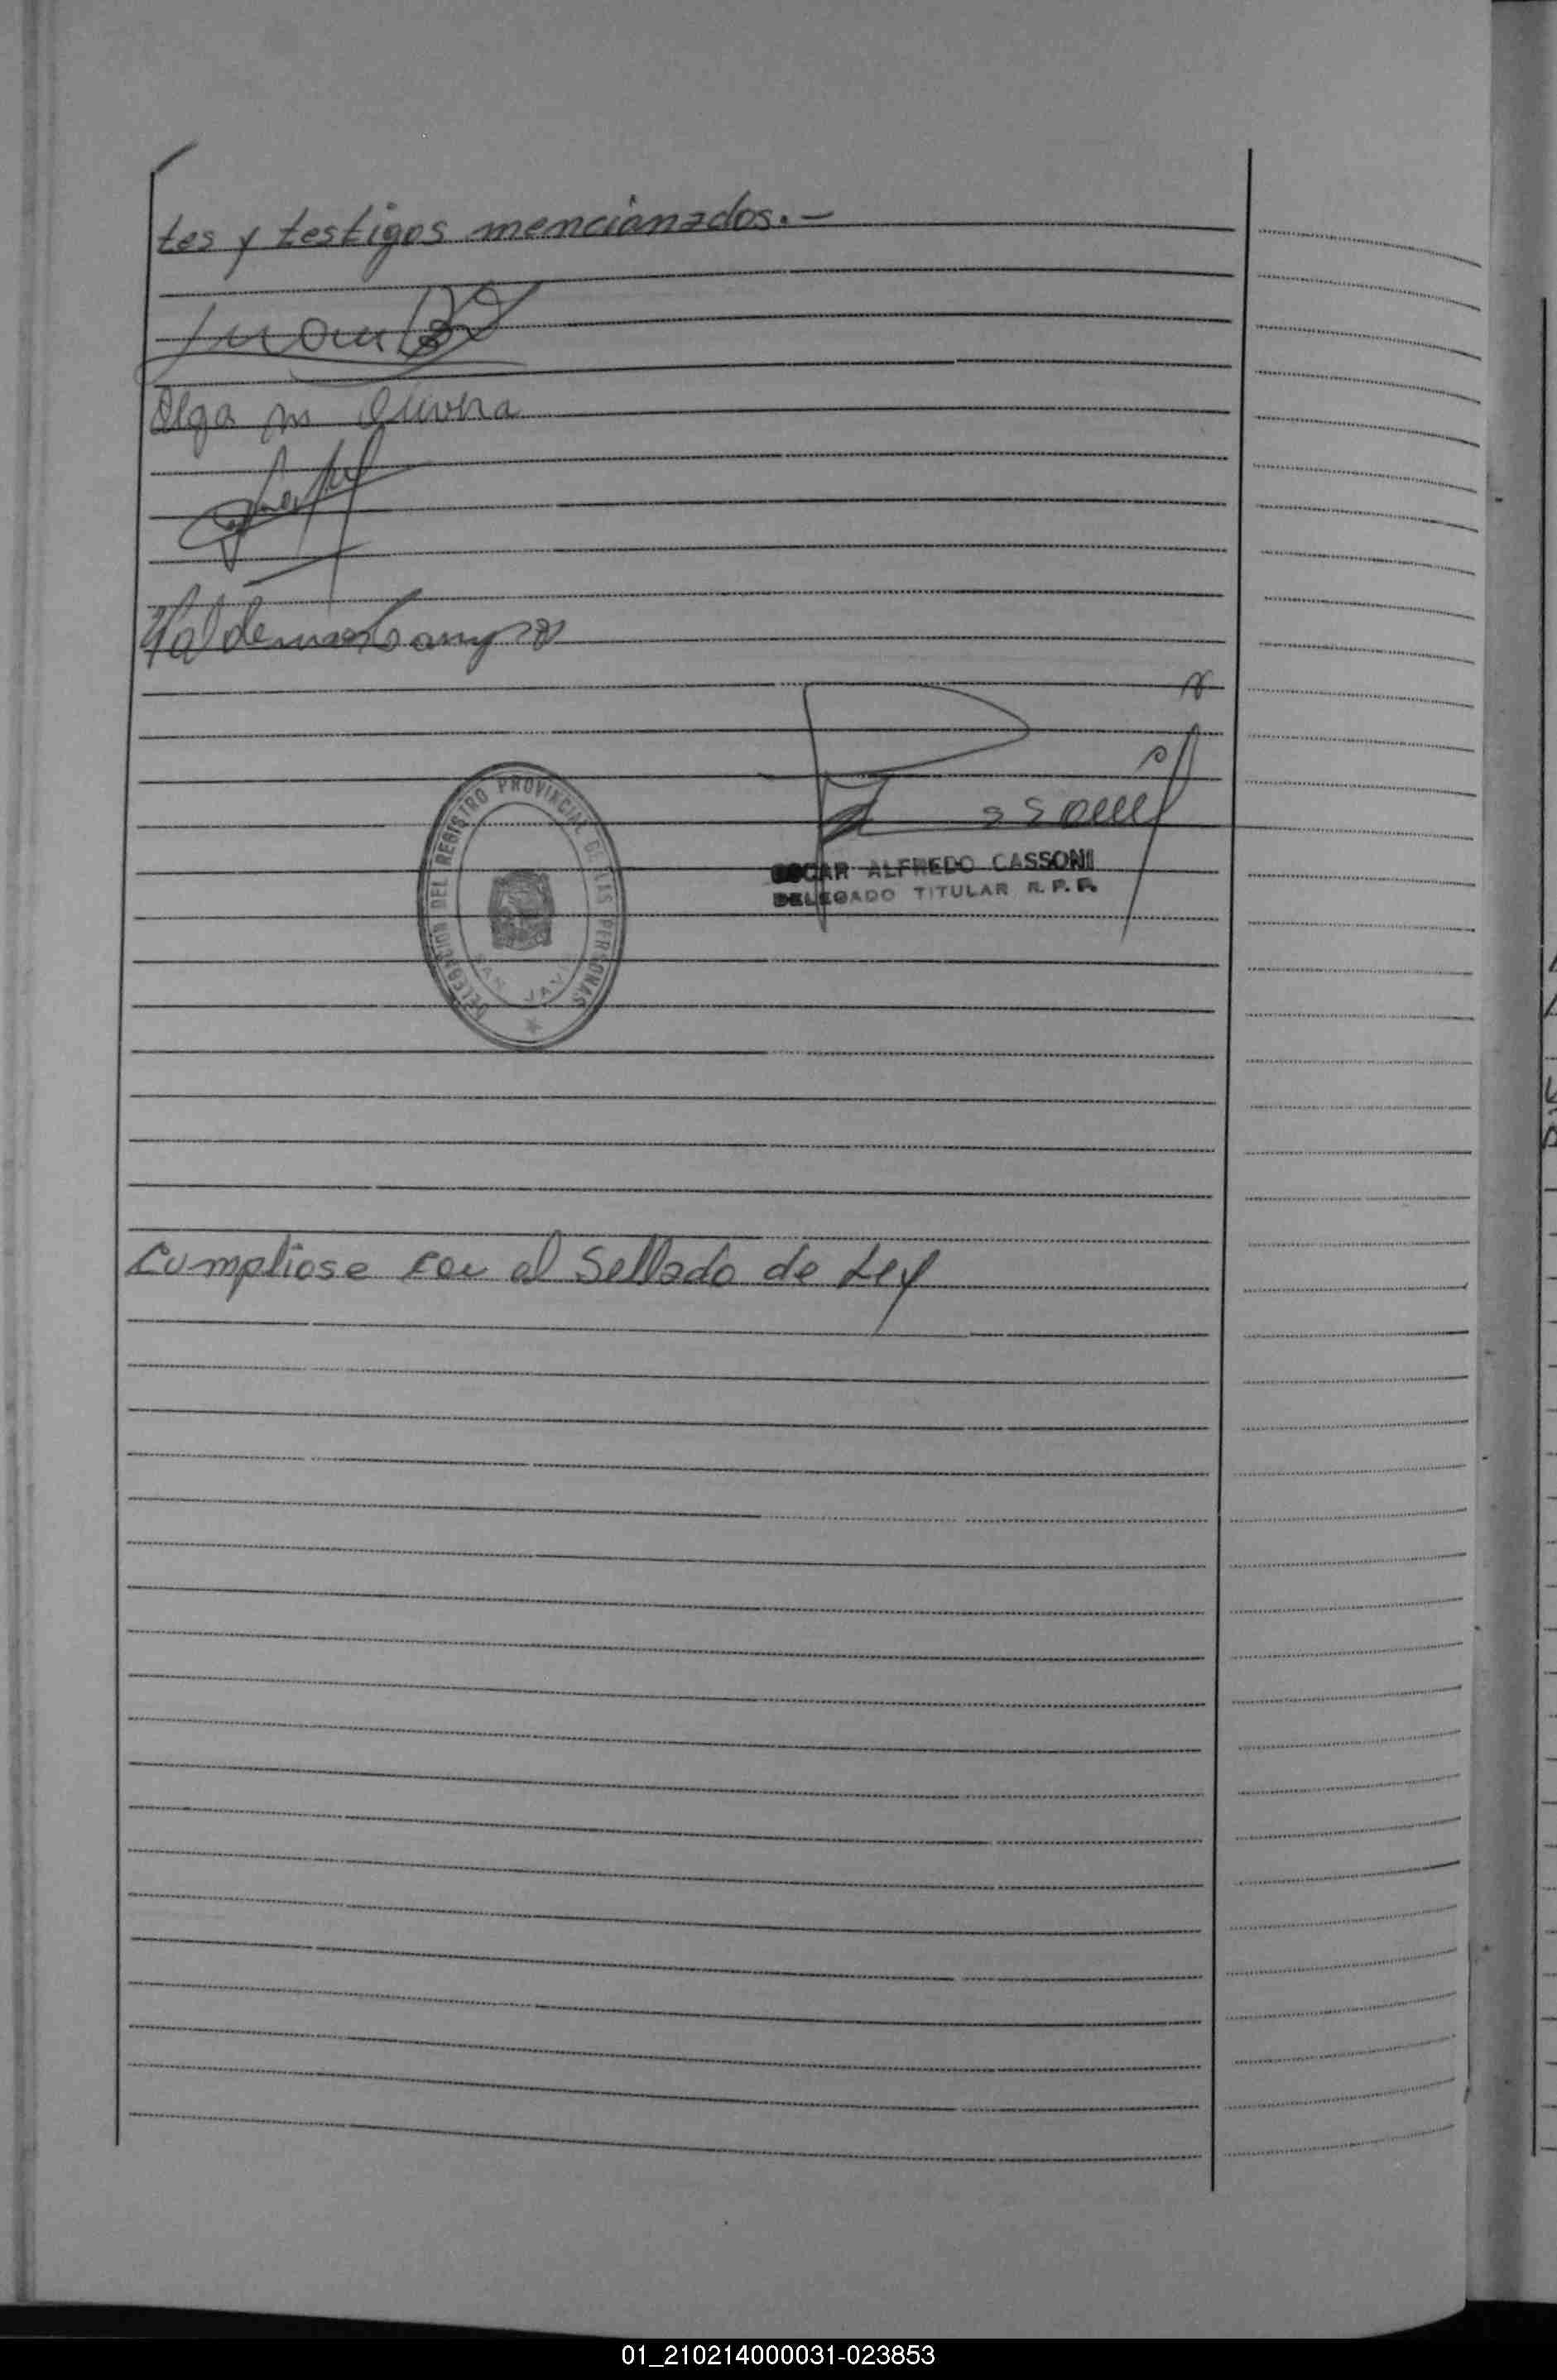 tes y testigos mencionados.—
Olga M Olivera
Valdemar Campos
DELEGACION DEL REGISTRO PROVINCIAL DE LAS PERSONAS
SAN JAVI
OSCAR ALFREDO CASSONI
DELEGADO TITULAR R. P. P.
Cumpliose con el Sellado de Ley
01_210214000031-023853